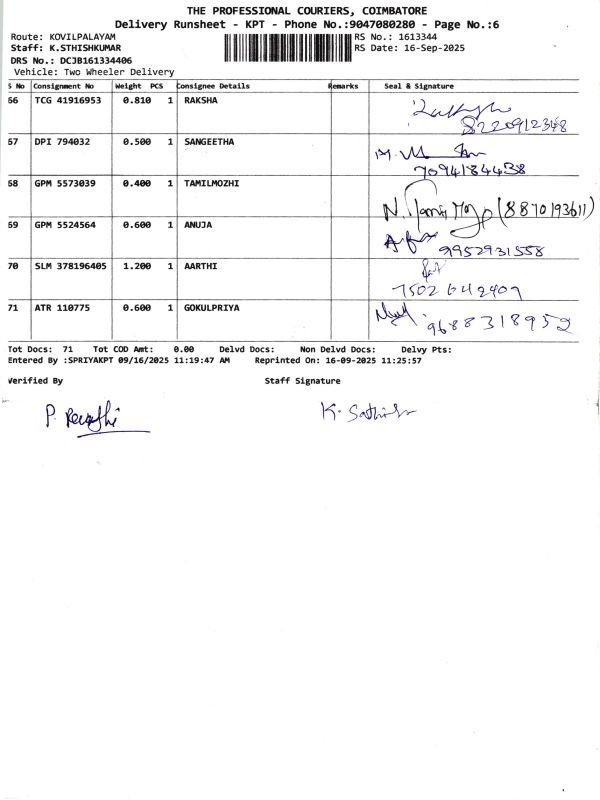 THE PROFESSIONAL COURIERS, COIMBATORE
Delivery Runsheet - KPT - Phone No.:9047080280 - Page No.:6
Route: KOVILPALAYAM RS No.: 1613344
Staff: K.STHISHKUMAR RS Date: 16-Sep-2025
DRS No.: DCJB161334406
Vehicle: Two Wheeler Delivery
S No Consignment No Weight PCS Consignee Details Remarks Seal & Signature
66 TCG 41916953 0.810 1 RAKSHA
8220912348
67 DPI 794032 0.500 1 SANGEETHA
7094184438
68 GPM 5573039 0.400 1 TAMILMOZHI
(8870193611)
69 GPM 5524564 0.600 1 ANUJA
9952931558
70 SLM 378196405 1.200 1 AARTHI
7502642409
71 ATR 110775 0.600 1 GOKULPRIYA
9688318952
Tot Docs: 71 Tot COD Amt: 0.00 Delvd Docs: Non Delvd Docs: Delvy Pts:
Entered By :SPRIYAKPT 09/16/2025 11:19:47 AM Reprinted On: 16-09-2025 11:25:57
Verified By Staff Signature
P. Revathi